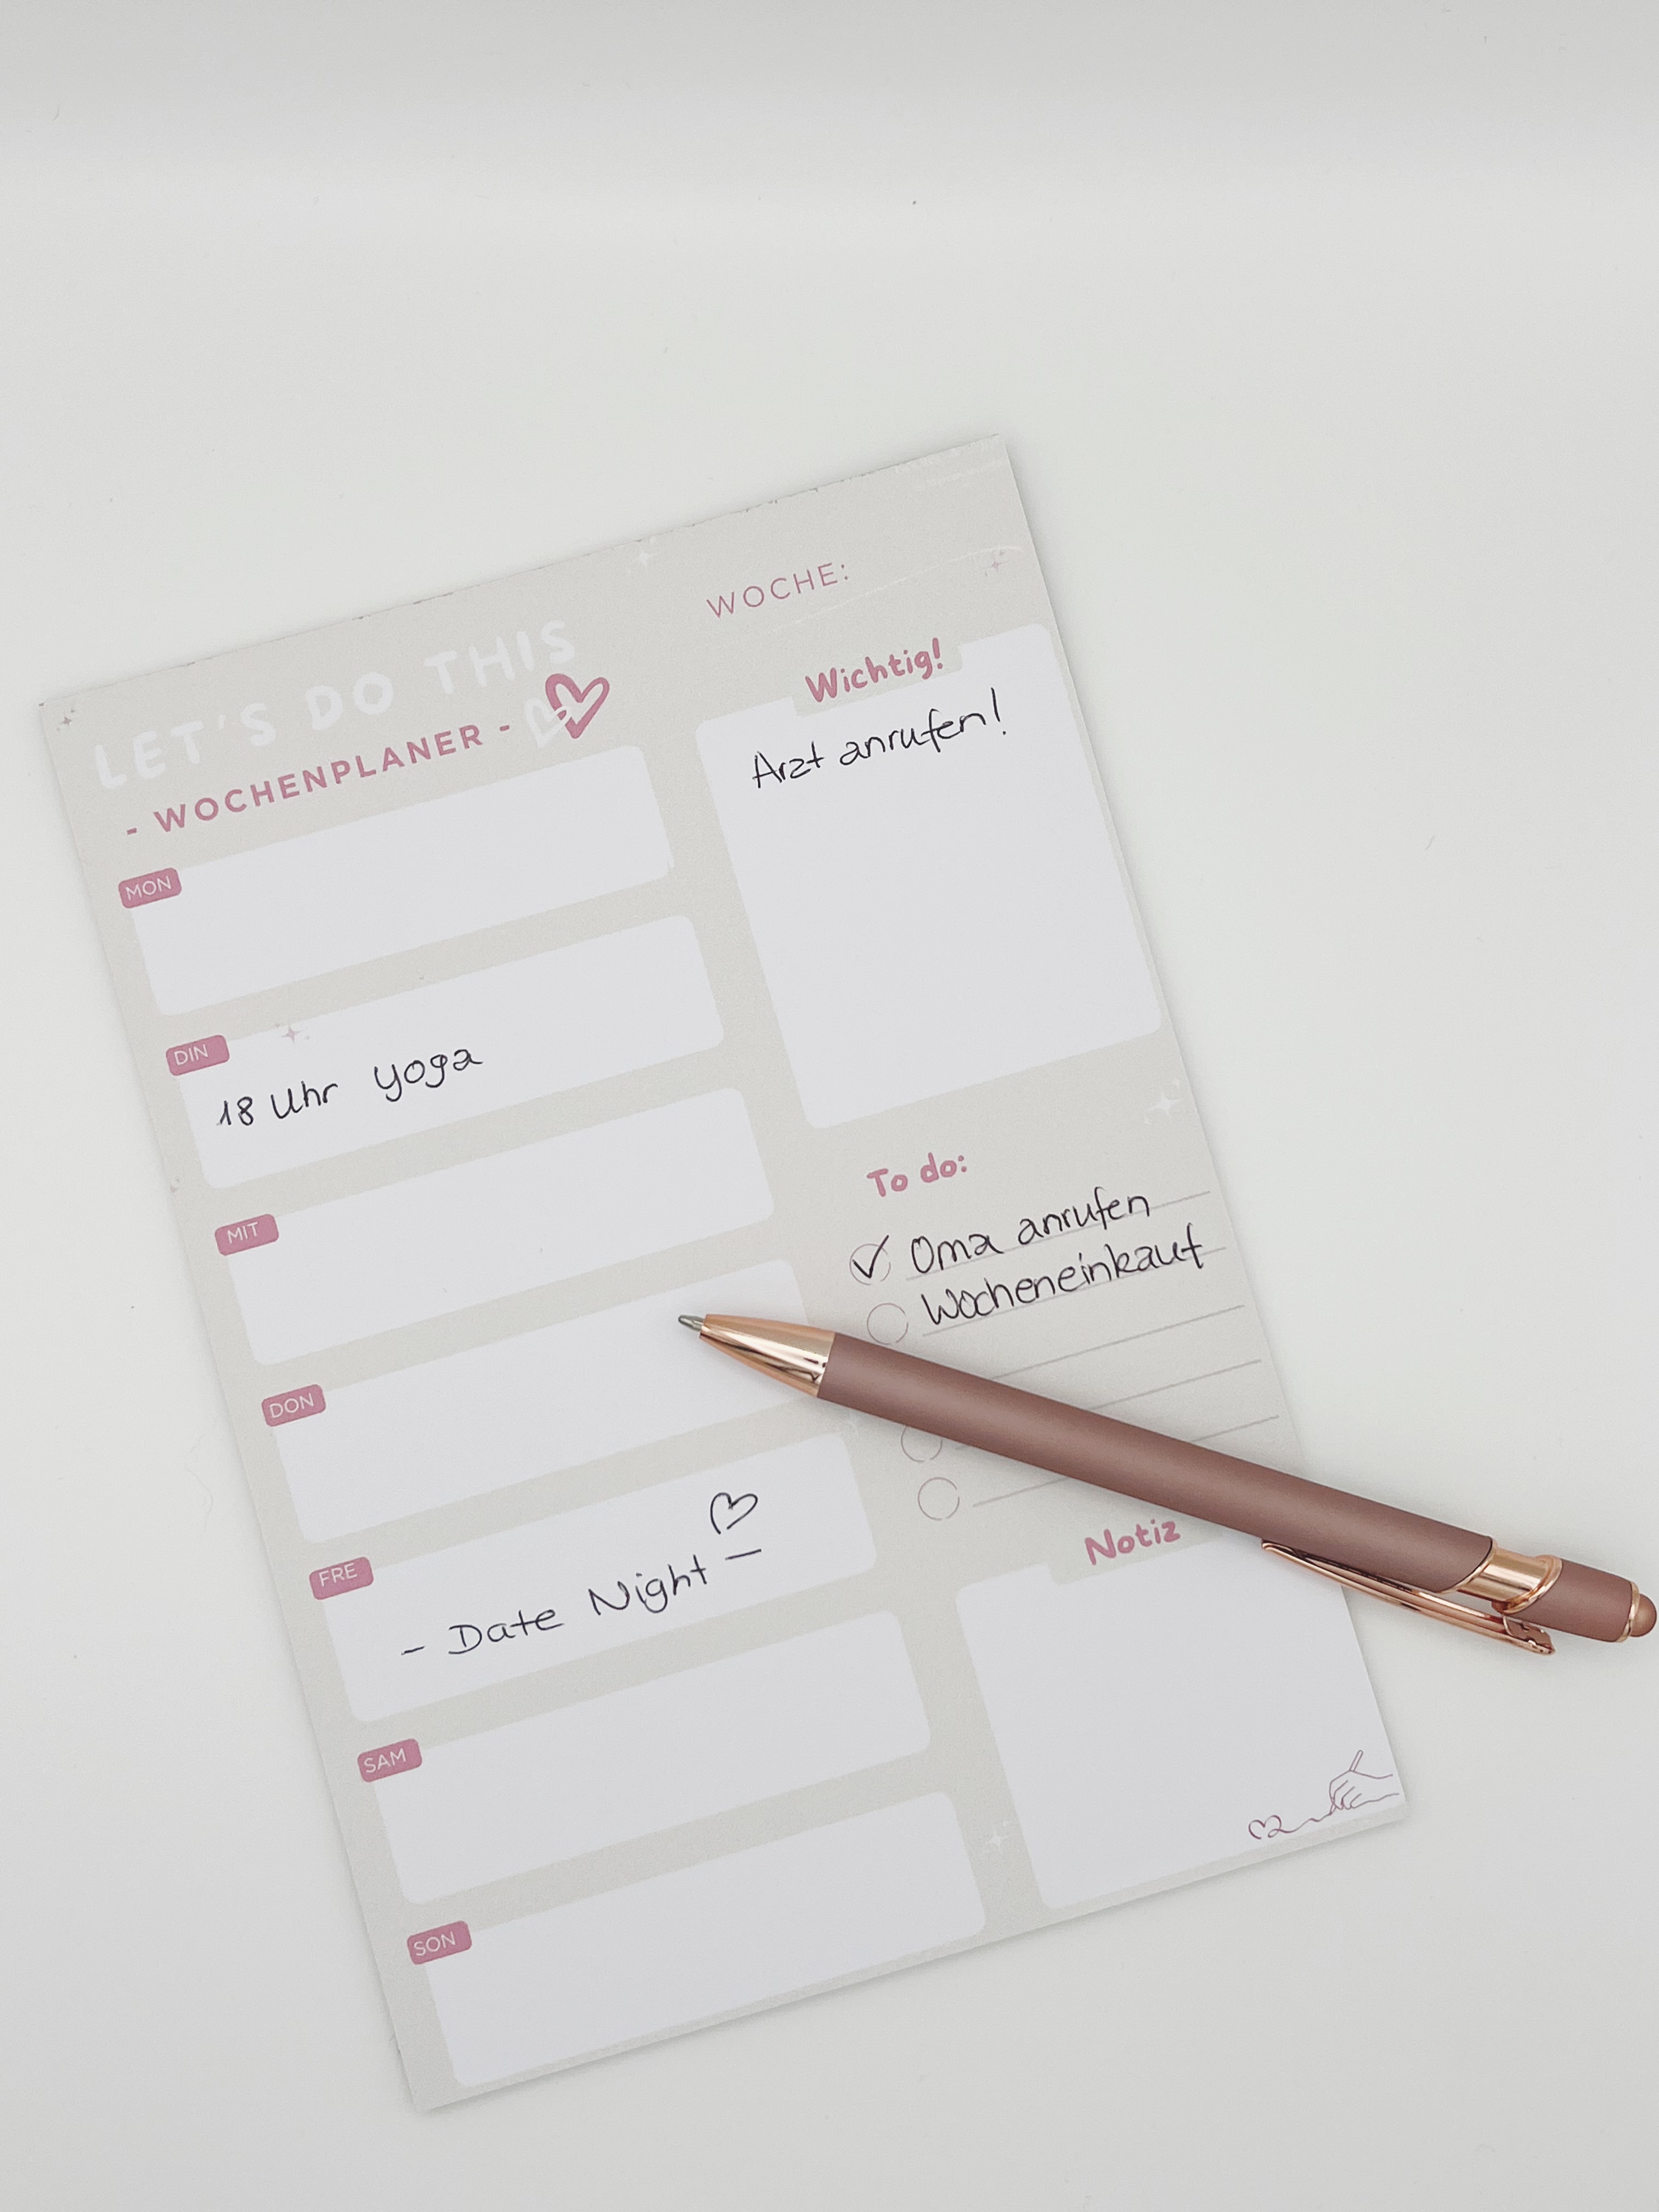 LET'S DO THIS
- WOCHENPLANER -
WOCHE:
MON
DIN
18 Uhr yoga
MIT
DON
FRE
- Date Night -
SAM
SON
Wichtig!
Arzt anrufen!
To do:
Oma anrufen
Wocheneinkauf
Notiz